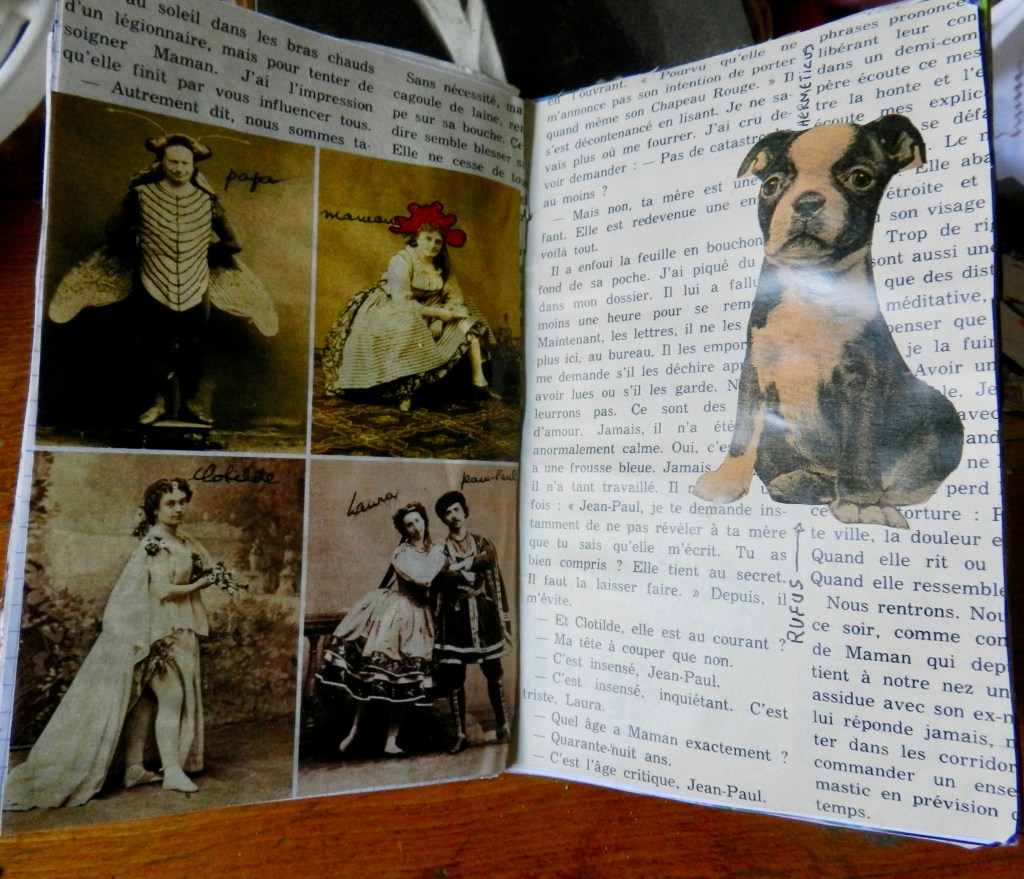 au soleil dans les bras chauds
d'un légionnaire, mais pour tenter de
soigner Maman. J'ai l'impression
qu'elle finit par vous influencer tous.
— Autrement dit, nous sommes ta-
Sans nécessité, ma
cagoule de laine, re
pe sur sa bouche. Ce
dire semble blesser s
Elle ne cesse de to
papa
maman
Clotilde
Laura
Jean-Paul
en l'ouvrant. « Pourvu qu'elle ne
m'annonce pas son intention de porter
quand même son Chapeau Rouge. » Il
s'est décontenancé en lisant. Je ne sa-
vais plus où me fourrer. J'ai cru de-
voir demander : — Pas de catastro
au moins ?
— Mais non, ta mère est une
fant. Elle est redevenue une en
voilà tout.
Il a enfoui la feuille en bouchon
fond de sa poche. J'ai piqué du
dans mon dossier. Il lui a fallu
moins une heure pour se rem
Maintenant, les lettres, il ne les
plus ici, au bureau. Il les empor
me demande s'il les déchire apr
avoir lues ou s'il les garde. N
leurrons pas. Ce sont des
d'amour. Jamais, il n'a été
anormalement calme. Oui, c'e
a une frousse bleue. Jamais
il n'a tant travaillé. Il
fois : « Jean-Paul, je te demande ins-
tamment de ne pas révéler à ta mère
que tu sais qu'elle m'écrit. Tu as
bien compris ? Elle tient au secret.
Il faut la laisser faire. » Depuis, il
m'évite.
— Et Clotilde, elle est au courant ?
— Ma tête à couper que non.
— C'est insensé, Jean-Paul.
— C'est insensé, inquiétant. C'est
triste, Laura.
— Quel âge a Maman exactement ?
— Quarante-huit ans.
— C'est l'âge critique, Jean-Paul.
HERMETICUS
RUFUS
phrases prononcé
libérant leur con
dans un demi-com
père écoute ce mes
tre la honte et l'e
écoute mes explic
se défa
Le n
Elle aba
étroite et
son visage
Trop de ri
sont aussi un
que des dist
méditative,
penser que
je la fuir
Avoir un
ble. Je
avec
and
ne
perd
ce torture :
te ville, la douleur e
Quand elle rit ou
Quand elle ressemble
Nous rentrons. Nou
ce soir, comme con
de Maman qui dep
tient à notre nez un
assidue avec son ex-
lui réponde jamais,
ter dans les corridor
commander un ense
mastic en prévision
temps.